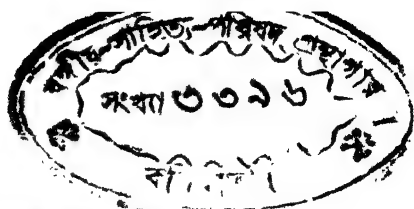 বঙ্গীয়-সাহিত্য-পরিষদ্ গ্রন্থাগার
সংখ্যা ৩৩৯৬